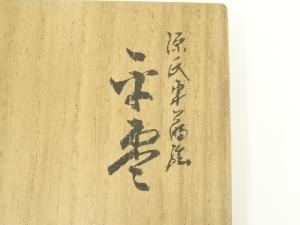 源氏車蒔絵
平棗